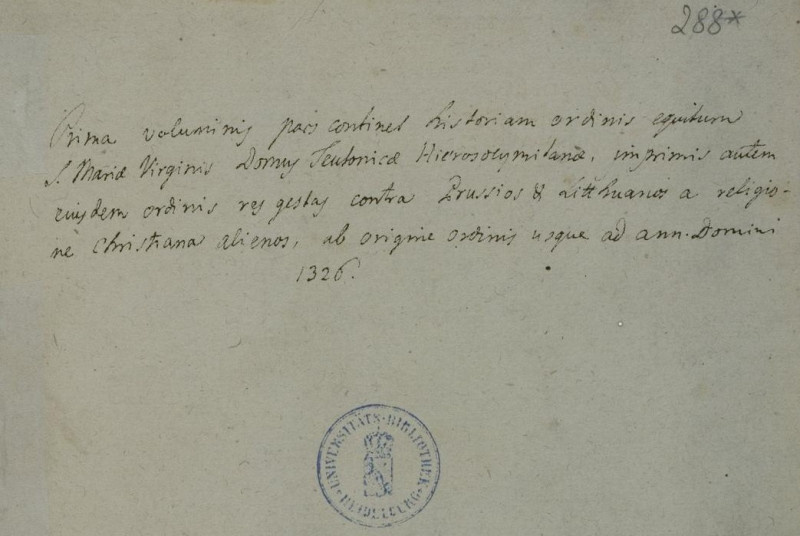 288*
Prima voluminis pars continet historiam ordinis equitum
S. Mariæ Virginis Domus Teutonicæ Hierosolymitanæ, imprimis autem
eiusdem ordinis res gestas contra Prussios & Litthuanos a religio-
ne Christiana alienos, ab origine ordinis usque ad ann. Domini
1326.
UNIVERSITÄTS-BIBLIOTHEK
HEIDELBERG